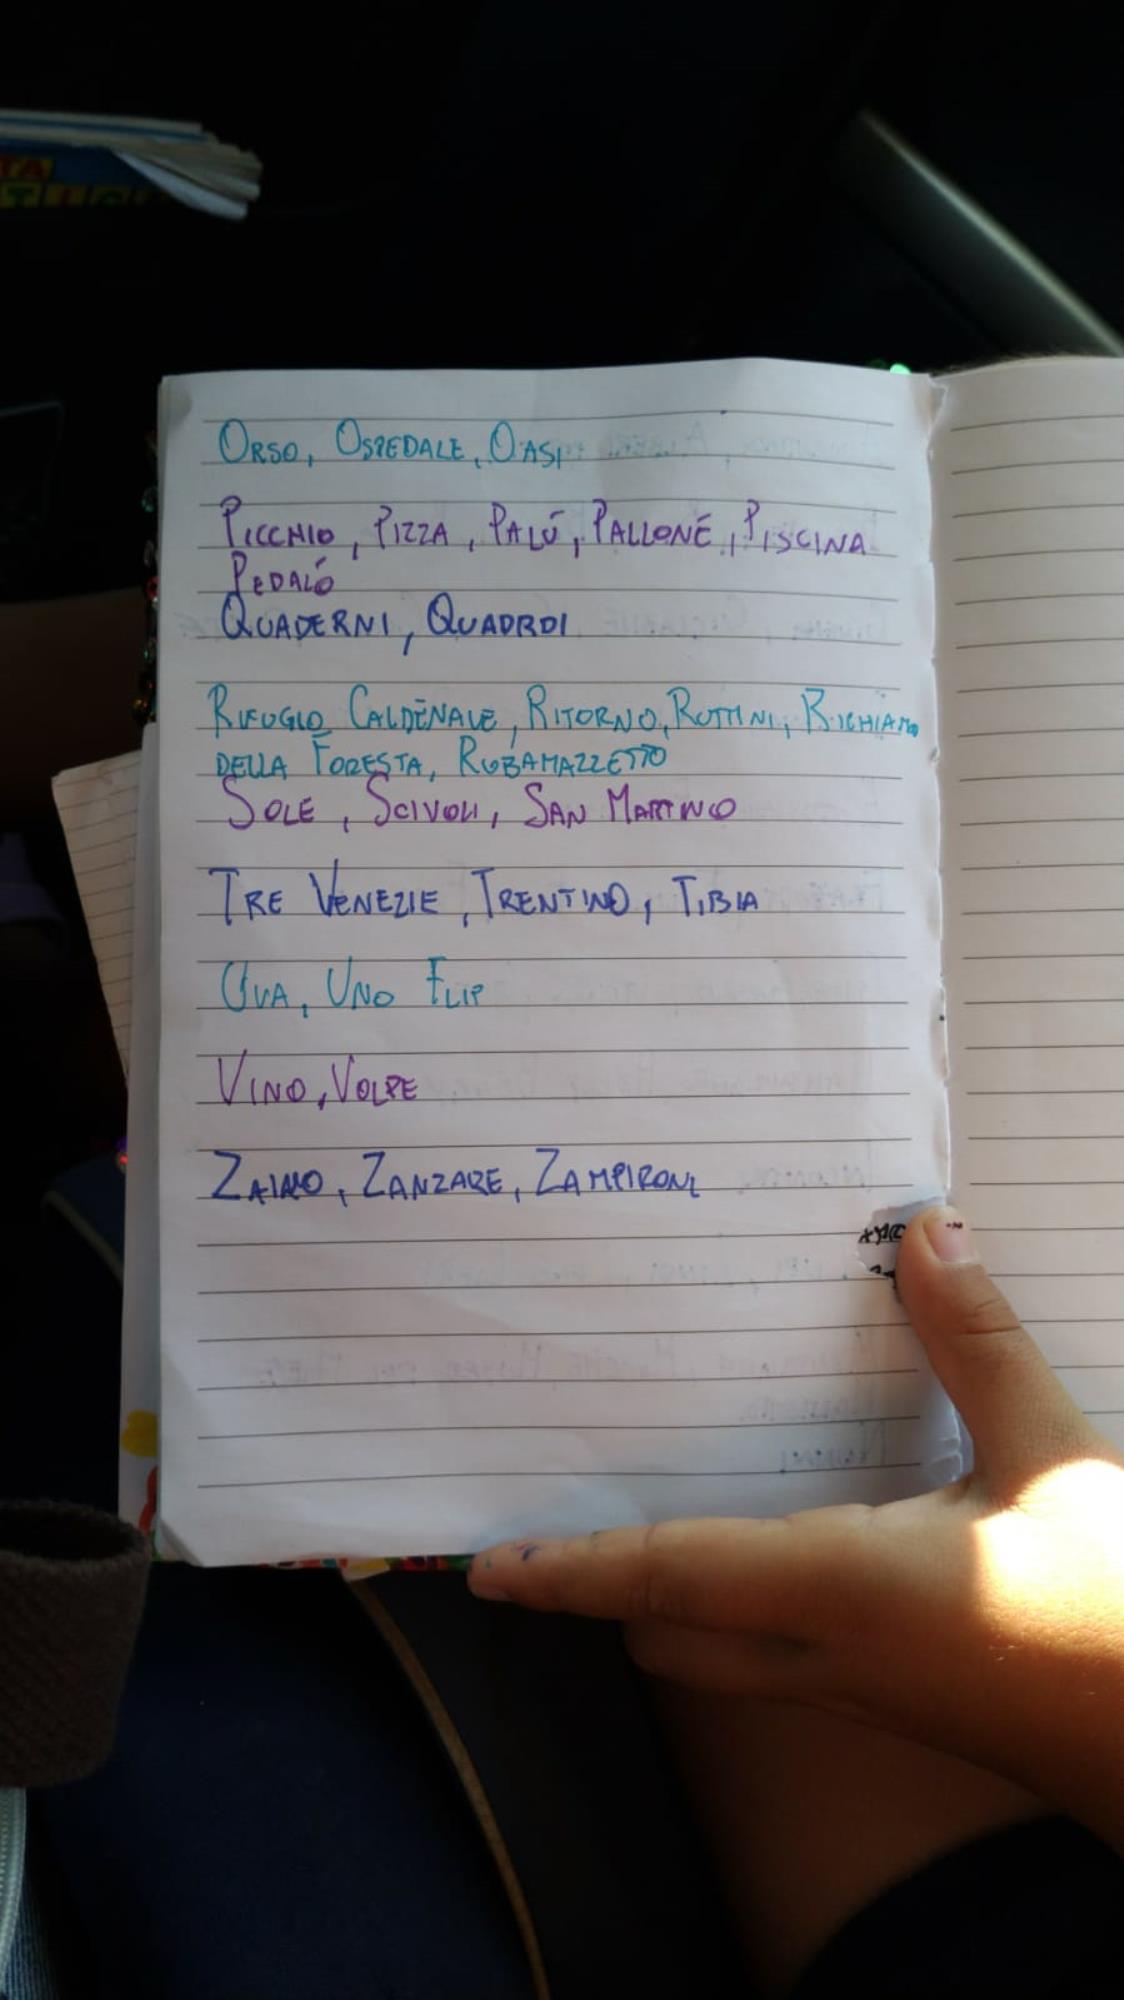 TA
ORSO, OSPEDALE, OASI
PICCHIO, PIZZA, PALÚ, PALLONE, PISCINA
PEDALÓ
QUADERNI, QUADRDI
RIFUGIO CALDENAVE, RITORNO, ROTTINI, RICHIAMO
DELLA FORESTA, RUBAMAZZETTO
SOLE, SCIVOLI, SAN MARTINO
TRE VENEZIE, TRENTINO, TIBIA
UVA, UNO FLIP
VINO, VOLPE
ZAINO, ZANZARE, ZAMPIRONI